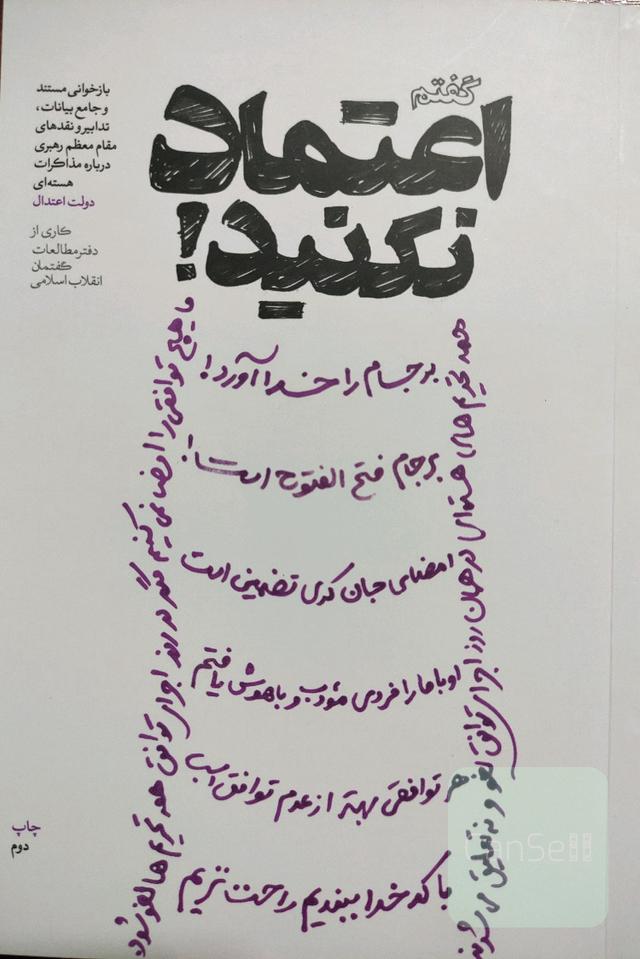 گفتم
اعتماد
نکنید!
بازخوانی مستند
و جامع بیانات،
تدابیر و نقدهای
مقام معظم رهبری
درباره مذاکرات
هسته‌ای
دولت اعتدال
کاری از
دفتر مطالعات
گفتمان
انقلاب اسلامی
همه تحریم های هسته‌ای در همان روز اجرای توافق لغو و نه تعلیق می شوند
برجام را خدا آورد!
برجام فتح الفتوح است
امضای جان کری تضمین است
اوباما را فردی مؤدب و باهوش یافتم
هر توافقی بهتر از عدم توافق است
با کدخدا ببندیم راحت تریم
ما هیچ توافقی را امضا نمی کنیم مگر در روز اجرای توافق همه تحریم ها لغو شود
چاپ
دوم
CanSell